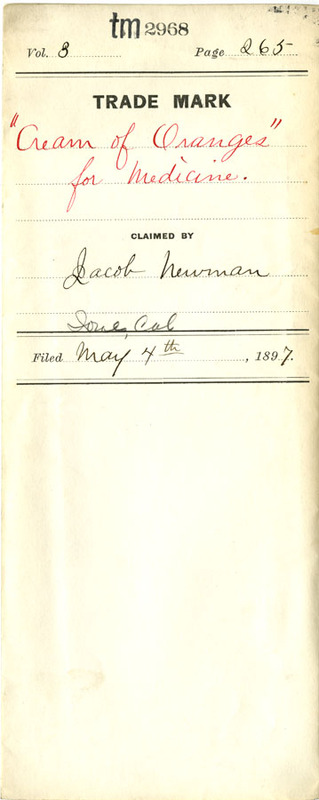 tm 2968
Vol. 3 Page 265
TRADE MARK
"Cream of Oranges"
for Medicine.
CLAIMED BY
Jacob Newman
Ione, Cal
Filed May 4th, 1897.